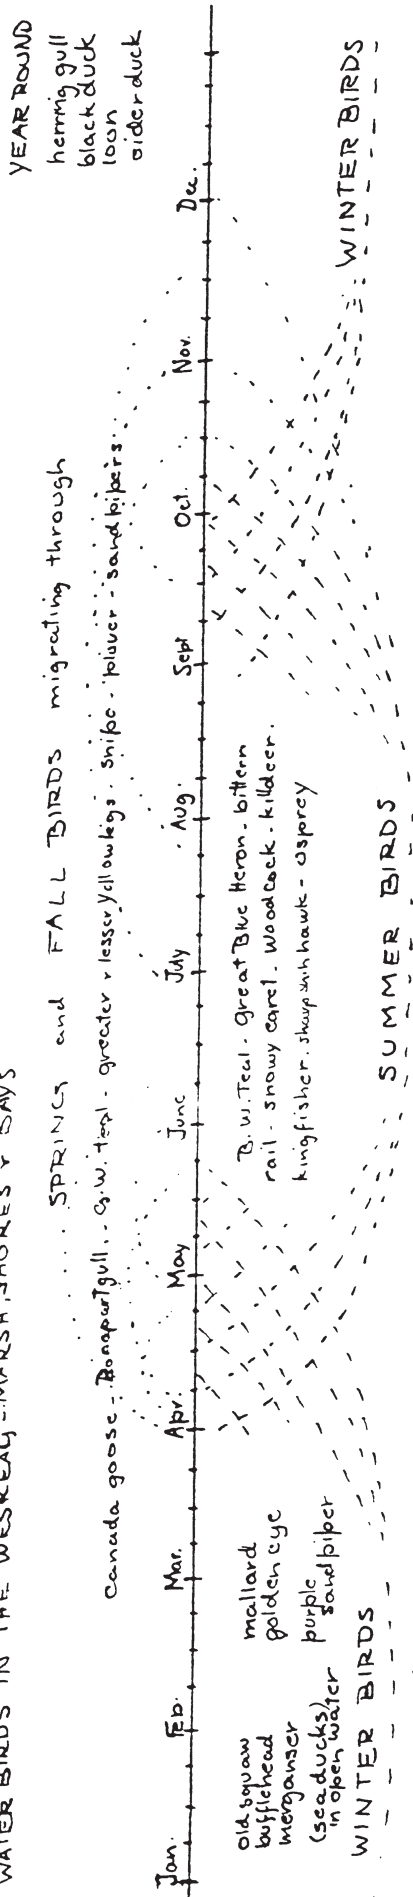 WATER BIRDS IN THE WESKEAG - MARSH, SHORES & BAYS
YEAR ROUND
herring gull
black duck
loon
eider duck
SPRING and FALL BIRDS migrating through
Canada goose - Bonapart gull - G.W. teal - greater & lesser yellowlegs - snipe - plover - sandpipers
Jan. Feb. Mar. Apr. May June July Aug. Sept Oct. Nov. Dec.
old squaw
bufflehead
merganser
(sea ducks)
in open water
mallard
golden eye
purple
sandpiper
B.W. Teal - Great Blue Heron - bittern
rail - snowy egret - woodcock - killdeer.
kingfisher - sharpshin hawk - osprey
WINTER BIRDS
SUMMER BIRDS
WINTER BIRDS